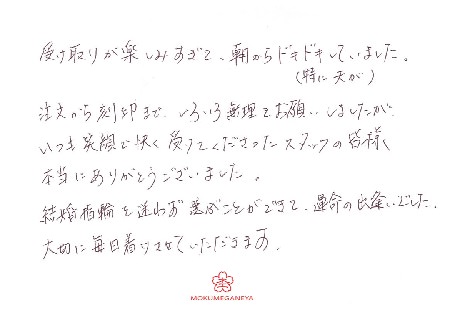 受け取りが楽しみすぎて、朝からドキドキしていました。
(特に夫が)
注文から刻印まで、いろいろ無理をお願いしましたが、
いつも笑顔で快く受けてくださったスタッフの皆様、
本当にありがとうございました。
結婚指輪を迷わず選ぶことができて、運命の出逢いでした。
大切に毎日着けさせていただきます。
MOKUMEGANEYA